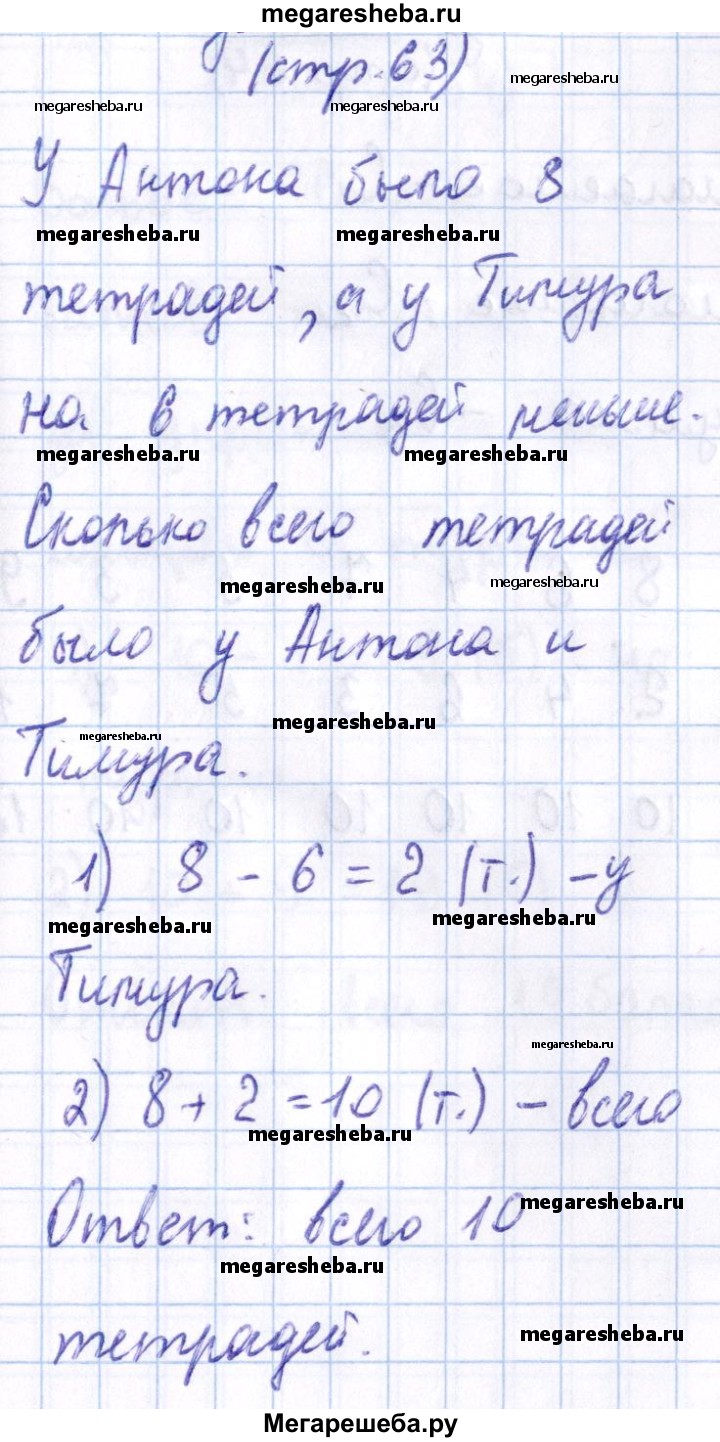 megaresheba.ru
(стр.63)
megaresheba.ru
megaresheba.ru megaresheba.ru
У Антона было 8
megaresheba.ru megaresheba.ru
тетрадей, а у Тимура
на 6 тетрадей меньше.
megaresheba.ru megaresheba.ru
Сколько всего тетрадей
megaresheba.ru megaresheba.ru
было у Антона и
megaresheba.ru
megaresheba.ru
Тимура.
1) 8 - 6 = 2 (т.) - у
megaresheba.ru megaresheba.ru
Тимура.
megaresheba.ru
2) 8 + 2 = 10 (т.) - всего
megaresheba.ru
Ответ: всего 10
megaresheba.ru
megaresheba.ru
тетрадей.
megaresheba.ru
Мегарешеба.ру